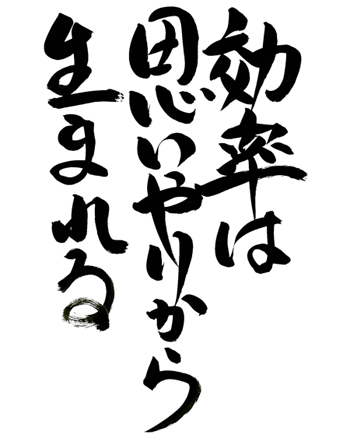 効率は
思いやりから
生まれる